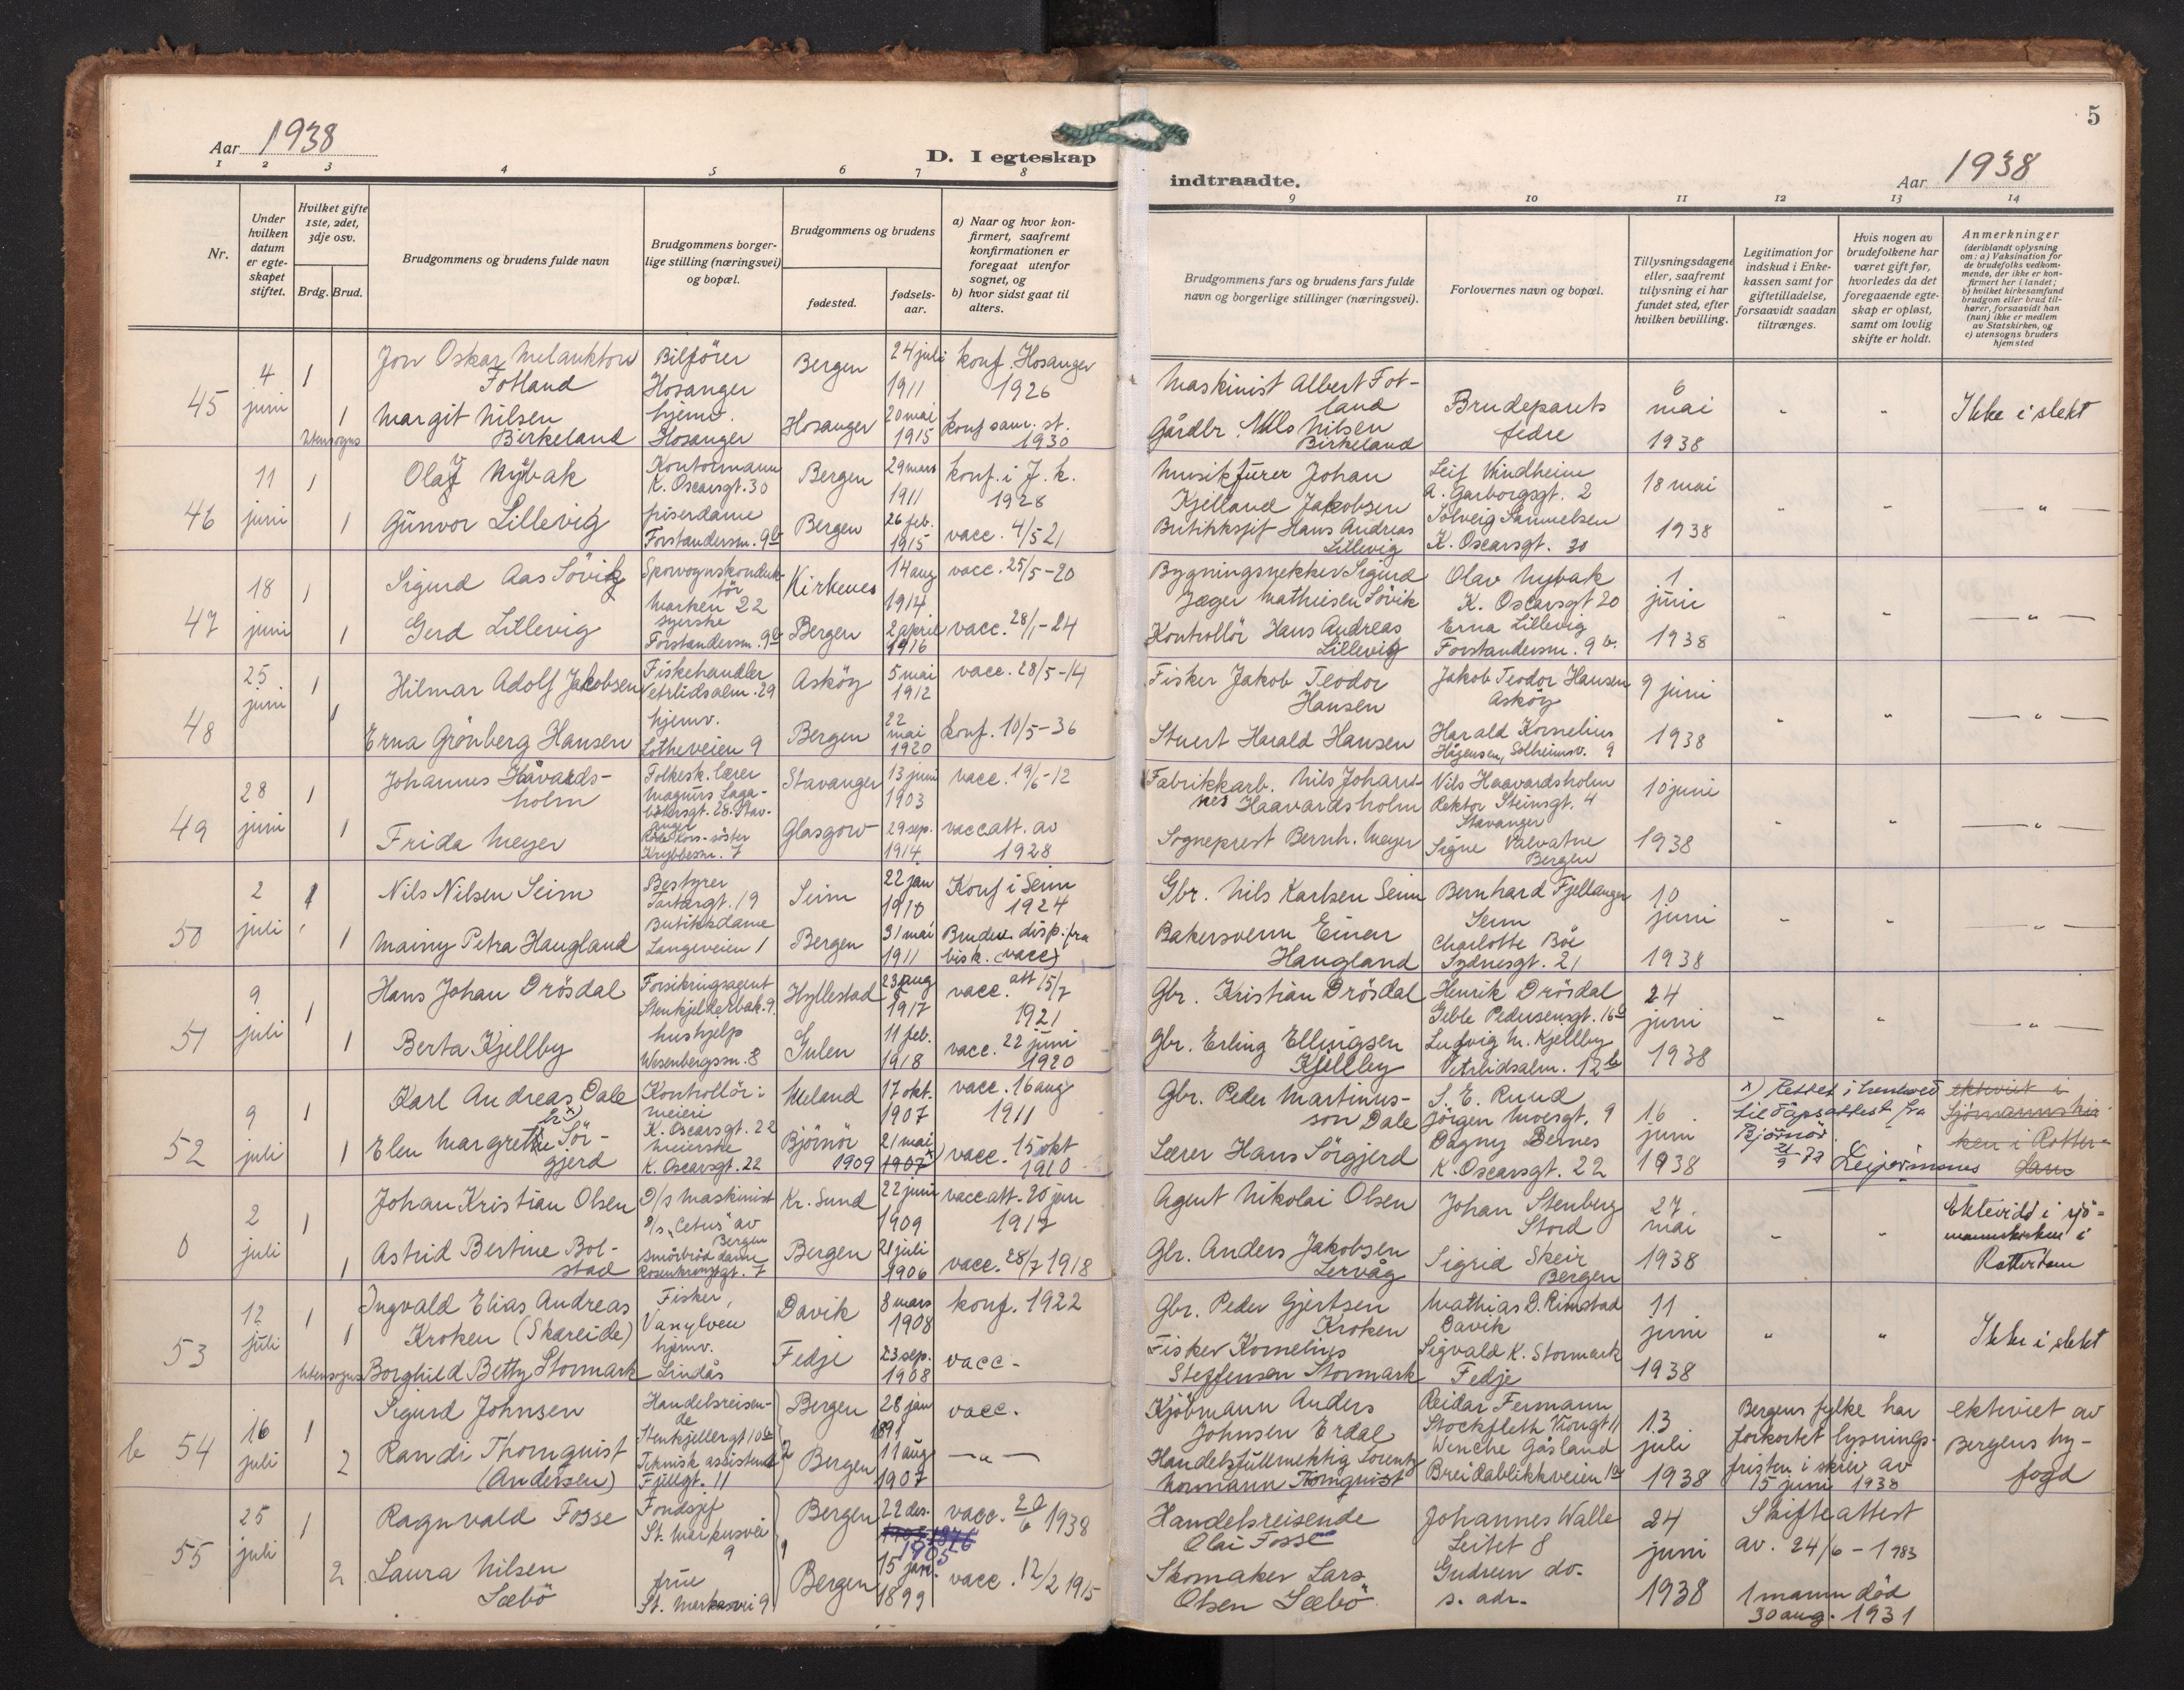 Aar 1938
D. I egteskap
1 2 3 4 5 6 7 8
Nr.
Under hvilken datum er egteskapet stiftet.
Hvilket gifte 1ste, 2det, 3dje osv.
Brdg. Brud.
Brudgommens og brudens fulde navn
Brudgommens borgerlige stilling (næringsvei) og bopæl.
Brudgommens og brudens
fødested.
fødselsaar.
a) Naar og hvor konfirmert, saafremt konfirmationen er foregaat utenfor sognet, og
b) hvor sidst gaat til alters.
5
indtraadte.
Aar 1938
9 10 11 12 13 14
Brudgommens fars og brudens fars fulde navn og borgerlige stillinger (næringsvei).
Forlovernes navn og bopæl.
Tillysningsdagene eller, saafremt tillysning ei har fundet sted, efter hvilken bevilling.
Legitimation for indskud i Enkekassen samt for giftetilladelse, forsaavidt saadan tiltrænges.
Hvis nogen av brudefolkene har været gift før, hvorledes da det foregaaende egteskap er opløst, samt om lovlig skifte er holdt.
Anmerkninger
(deriblandt oplysning om: a) Vaksination for de brudefolks vedkommende, der ikke er konfirmert her i landet; b) hvilket kirkesamfund brudgom eller brud tilhører, forsaavidt han (hun) ikke er medlem av Statskirken, og c) utensogns bruders hjemsted
45 4 juni 1 Jon Oskar Melankton Fotland Bilförer Hosanger Bergen 24 juli 1911 konf. Hosanger 1926
1 utensogns Margit Nilsen Birkeland hjemv. Hosanger Hosanger 20 mai 1915 konf sam. st. 1930
Maskinist Albert Fotland
Gårdbr. Nils Nilsen Birkeland
Brudeparets fedre
6 mai 1938 " " Ikke i slekt
46 11 juni 1 Olav Nybak Kontormann K. Oscarsgt. 30 Bergen 29 mars 1911 konf. i J. k. 1928
1 Gunvor Lillevig friserdame Forstandersm. 9b Bergen 26 feb. 1915 vacc. 4/5 21
Musikfürer Johan Kjelland Jakobsen
Butikksjef Hans Andreas Lillevig
Leif Vindheim A. Garborgsgt. 2
Solveig Samuelsen K. Oscarsgt. 30
18 mai 1938 " " — " —
47 18 juni 1 Sigurd Aas Sövik Sporvognskonduktör Marken 22 Kirkenes 14 aug 1914 vacc. 25/5-20
1 Gerd Lillevig syerske Forstandersm. 9b Bergen 2 april 1916 vacc. 28/1-24
Bygningssnekker Sigurd Jæger Mathiesen Sövik
Kontrollör Hans Andreas Lillevig
Olav Nybak K. Oscarsgt 20
Erna Lillevig Forstandersm. 9 b.
1 juni 1938 " " — " —
48 25 juni 1 Hilmar Adolf Jakobsen Fiskehandler Vetrlidsalm. 29 Asköy 5 mai 1912 vacc. 28/5-14
1 Erna Grönberg Hansen hjemv. Lotheveien 9 Bergen 22 mai 1920 konf. 10/5-36
Fisker Jakob Teodor Hansen
Stuert Harald Hansen
Jakob Teodor Hansen Asköy
Harald Kornelius Hågensen, Solheimsv. 9
9 juni 1938 " " — " —
49 28 juni 1 Johannes Håvardsholm Folkesk. lærer Magnus Lagabötersgt. 28. Stavanger Stavanger 13 juni 1903 vacc. 19/6-12
1 Frida Meyer Röde Kors-söster Krybbesm. 7 Glasgow 29 sep. 1914 vaccatt. av 1928
Fabrikkarb. Nils Johannes Haavardsholm
Sogneprest Bernh. Meyer
Nils Haavardsholm Rektor Steinsgt. 4 Stavanger
Signe Valvatne Bergen
10 juni 1938 " " — " —
50 2 juli 1 Nils Nilsen Seim Bestyrer Tartargt. 19 Seim 22 jan 1910 Konf i Seim 1924
1 Mainy Petra Haugland Butikkdame Langeveien 1 Bergen 31 mai 1911 Bruden disp. fra bisk. (vacc)
Gbr. Nils Karlsen Seim
Bakersvenn Einar Haugland
Bernhard Fjellanger Seim
Charlotte Böe Sydnesgt. 21
10 juni 1938 " " — " —
51 9 juli 1 Hans Johan Drösdal Forsikringsagent Stenkjelderbak. 9 Hyllestad 23 aug 1917 vacc. att 15/7 1921
1 Berta Kjellby hushjelp Wesenbergssm. 8 Gulen 11 feb. 1918 vacc. 22 juni 1920
Gbr. Kristian Drösdal
Gbr. Erling Ellingsen Kjellby
Henrik Drösdal Geble Pedersensgt. 16b
Ludvig M. Kjellby Vetrlidsalm. 12b
24 juni 1938 " " — " —
52 9 juli 1 Karl Andreas Dale Kontrollör i meieri K. Oscarsgt. 22 Meland 17 okt. 1907 vacc. 16 aug 1911
1 Elen Margrethe x) Sörgjerd meierske K. Oscarsgt. 22 Björnör 21 mai 1907 x) 1909 vacc. 15 okt 1910
Gbr. Peder Martinusson Dale
Lærer Hans Sörgjerd
S. E. Ruud Jörgen Moesgt. 9
Dagny Dernes K. Oscarsgt. 22
16 juni 1938
x) Rettet i henhold til dåpsattest fra Björnör 21/9 72
ektviet i Sjömannskirken i Rotterdam
0 2 juli 1 Johan Kristian Olsen D/s maskinist s/s "Cetus" av Bergen Kr. Sund 22 juni 1909 vaccatt. 20 jan 1917
1 Astrid Bertine Bolstad smörbröddame Rosenkrantzgt. 7 Bergen 21 juli 1906 vacc. 28/7 1918
Agent Nikolai Olsen
Gbr. Anders Jakobsen Lervåg
Johan Stenberg Stord
Sigrid Skeir Bergen
27 mai 1938 " " Ektevidd i sjömannskirken i Rotterdam
53 12 juli 1 Ingvald Elias Andreas Kroken (Skareide) Fisker, Vanylven Davik 8 mars 1908 konf. 1922
1 utensogns Borghild Betty Stormark hjemv. Lindås Fedje 23 sep. 1908 vacc-
Gbr. Peder Gjertsen Kroken
Fisker Kornelius Steffensen Stormark
Mathias D. Rimstad Davik
Sigvald K. Stormark Fedje
11 juni 1938 " " Ikke i slekt
b 54 16 juli 1 Sigurd Johnsen Handelsreisende Stenkjellergt 10b Bergen 28 jan 1891 vacc.
2 Randi Thornquist (Andersen) Teknisk assistent Fjellgt. 11 Bergen 11 aug 1907 — " —
Kjöbmann Anders Johnsen Erdal
Handelsfullmektig Lorentz Normann Thornquist
Reidar Fermann Stockfleth Virugt 11
Wenche Gåsland Breidablikkveien 1a
13 juli 1938
Bergens fylke har forkortet lysningsfristen i skriv av 15 juni 1938
ektviet av Bergens byfogd
55 25 juli 1 Ragnvald Fosse Fondsjef St. Markusvei 9 Bergen 22 des. 1905 vacc. 20/6 1938
2 Laura Nilsen Sæbö frue St. Markusvei 9 Bergen 15 jan. 1899 vacc. 12/2 1915
Handelsreisende Olai Fosse
Skomaker Lars Olsen Sæbö
Johannes Walle Leitet 8
Gudrun do. s. adr.
24 juni 1938
Skifteattest av. 24/6 - 1983
1 mann död 30 aug. 1931